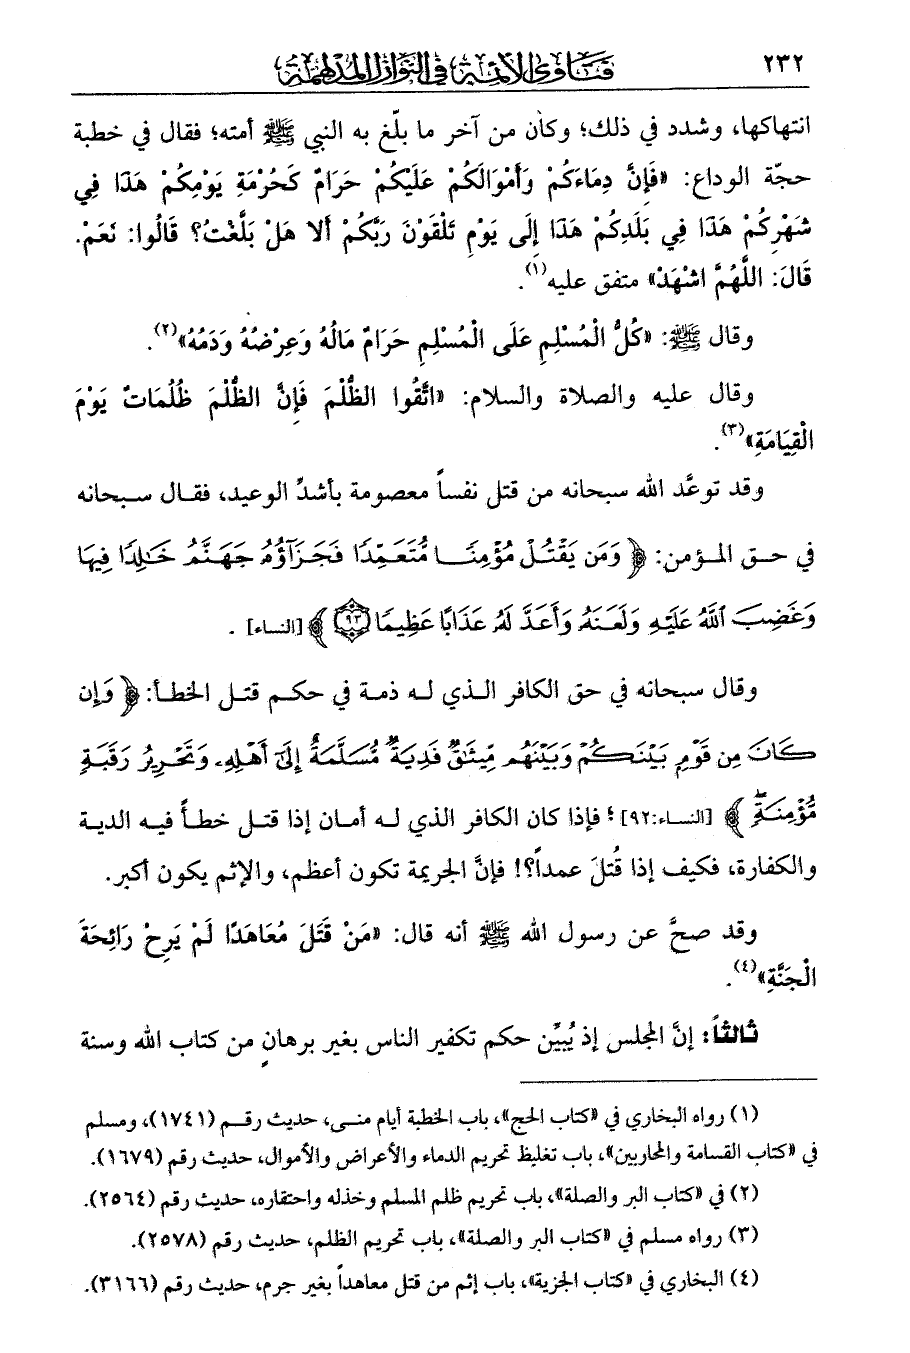 ٢٣٢
فتاوى الأئمة في النوازل المدلهمة
انتهاكها، وشدد في ذلك؛ وكان من آخر ما بلّغ به النبي ﷺ أمته؛ فقال في خطبة
حجّة الوداع: «فَإِنَّ دِمَاءَكُمْ وَأَمْوَالَكُمْ عَلَيْكُمْ حَرَامٌ كَحُرْمَةِ يَوْمِكُمْ هَذَا فِي
شَهْرِكُمْ هَذَا فِي بَلَدِكُمْ هَذَا إِلَى يَوْمِ تَلْقَوْنَ رَبَّكُمْ أَلا هَلْ بَلَّغْتُ؟ قَالُوا: نَعَمْ.
قَالَ: اللَّهُمَّ اشْهَدْ» متفق عليه(١).
وقال ﷺ: «كُلُّ الْمُسْلِمِ عَلَى الْمُسْلِمِ حَرَامٌ مَالُهُ وَعِرْضُهُ وَدَمُهُ»(٢).
وقال عليه والصلاة والسلام: «اتَّقُوا الظُّلْمَ فَإِنَّ الظُّلْمَ ظُلُمَاتٌ يَوْمَ
الْقِيَامَةِ»(٣).
وقد توعَّد الله سبحانه من قتل نفساً معصومة بأشدِّ الوعيد، فقال سبحانه
في حق المؤمن: ﴿وَمَن يَقْتُلْ مُؤْمِنًا مُّتَعَمِّدًا فَجَزَآؤُهُ جَهَنَّمُ خَالِدًا فِيهَا
وَغَضِبَ ٱللَّهُ عَلَيْهِ وَلَعَنَهُ وَأَعَدَّ لَهُ عَذَابًا عَظِيمًا ٩٣﴾ [النساء] .
وقال سبحانه في حق الكافر الذي له ذمة في حكم قتل الخطأ: ﴿وَإِن
كَانَ مِن قَوْمٍ بَيْنَكُمْ وَبَيْنَهُم مِّيثَاقٌ فَدِيَةٌ مُّسَلَّمَةٌ إِلَىٰٓ أَهْلِهِ وَتَحْرِيرُ رَقَبَةٍ
مُّؤْمِنَةٍ﴾ [النساء:٩٢]؛ فإذا كان الكافر الذي له أمان إذا قتل خطأً فيه الدية
والكفارة، فكيف إذا قُتلَ عمداً؟! فإنَّ الجريمة تكون أعظم، والإثم يكون أكبر.
وقد صحَّ عن رسول الله ﷺ أنه قال: «مَنْ قَتَلَ مُعَاهَدًا لَمْ يَرِحْ رَائِحَةَ
الْجَنَّةِ»(٤).
ثالثاً: إنَّ المجلس إذ يُبيِّن حكم تكفير الناس بغير برهانٍ من كتاب الله وسنة
(١) رواه البخاري في «كتاب الحج»، باب الخطبة أيام منى، حديث رقم (١٧٤١)، ومسلم
في «كتاب القسامة والمحاربين»، باب تغليظ تحريم الدماء والأعراض والأموال، حديث رقم (١٦٧٩).
(٢) في «كتاب البر والصلة»، باب تحريم ظلم المسلم وخذله واحتقاره، حديث رقم (٢٥٦٤).
(٣) رواه مسلم في «كتاب البر والصلة»، باب تحريم الظلم، حديث رقم (٢٥٧٨).
(٤) البخاري في «كتاب الجزية»، باب إثم من قتل معاهداً بغير جرم، حديث رقم (٣١٦٦).